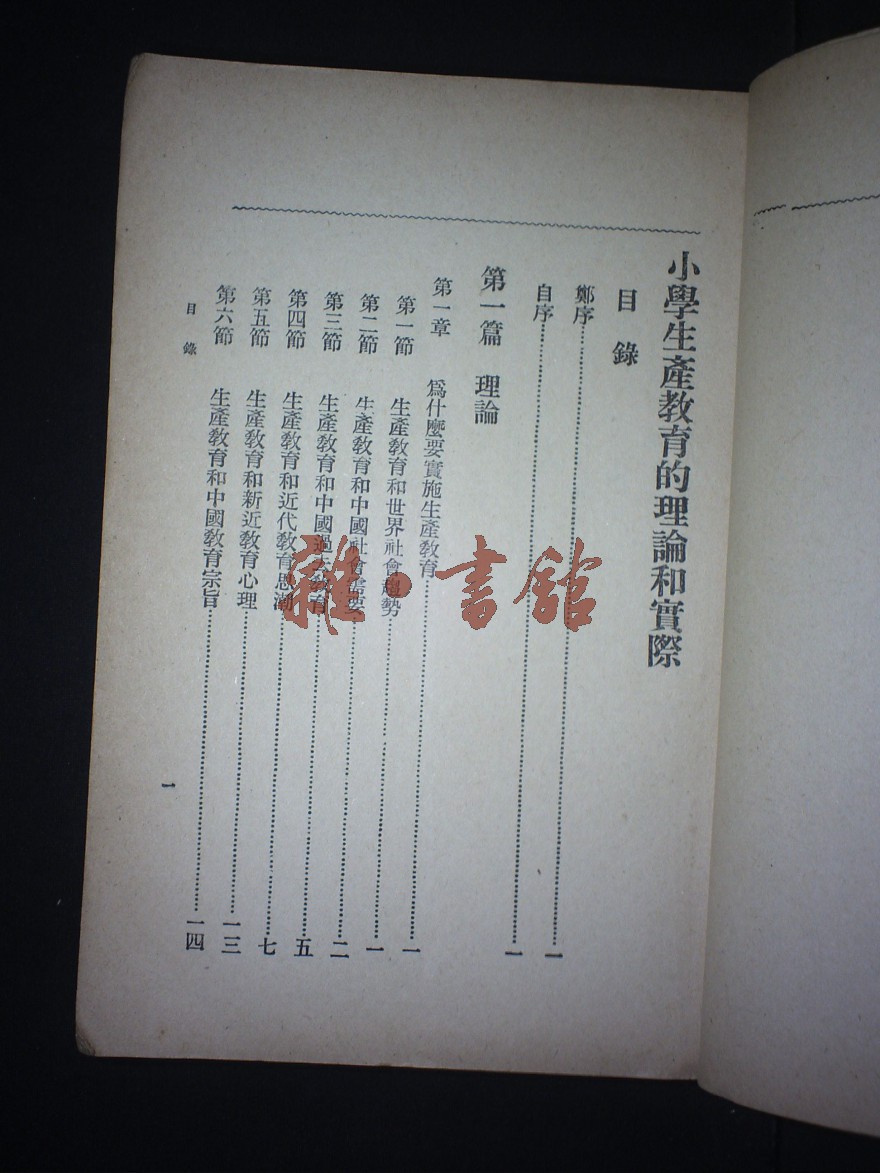 小學生產教育的理論和實際
目錄
鄭序……一
自序……一
第一篇 理論
第一章 爲什麼要實施生產教育……一
第一節 生產教育和世界社會趨勢……一
第二節 生產教育和中國社會需要……二
第三節 生產教育和中國過去教育……五
第四節 生產教育和近代教育思潮……七
第五節 生產教育和新近教育心理……一三
第六節 生產教育和中國教育宗旨……一四
目錄
一
雜·書館